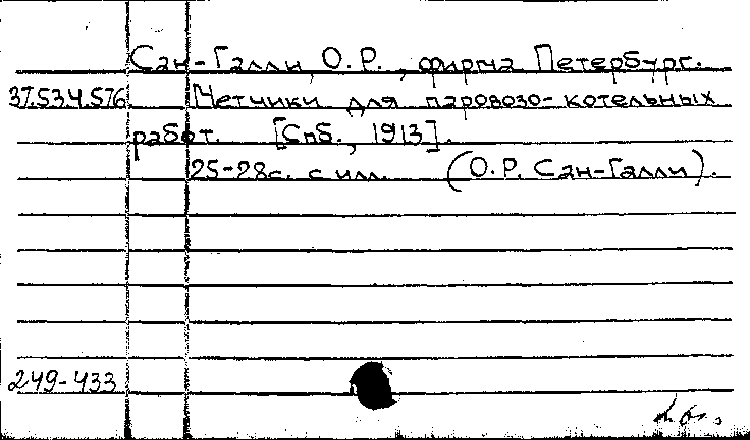 Сан-Галли, О.Р., фирма Петербург.
37.534.576 Метчики для паровозо-котельных
работ. [Спб., 1913].
25-28с. с илл. (О.Р. Сан-Галли).
249-433